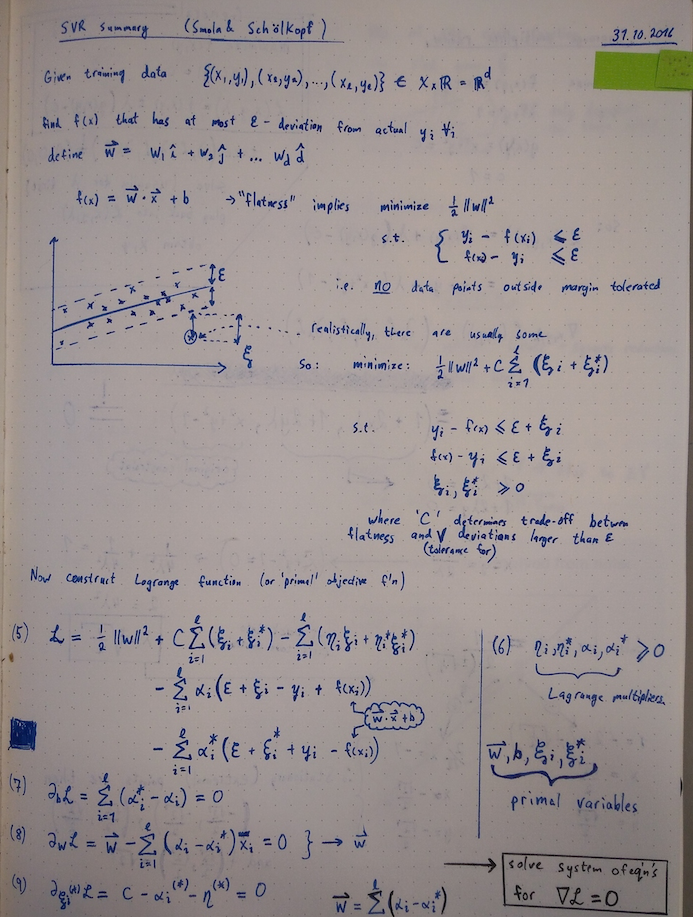 SVR summary (Smola & Schölkopf)
31.10.2016
Given training data {(x₁,y₁),(x₂,y₂),...,(xₗ,yₗ)} ∈ X × ℝ = ℝᵈ
find f(x) that has at most ε-deviation from actual yᵢ ∀ᵢ
define w⃗ = w₁î + w₂ĵ + ... w_d d̂
f(x) = w⃗ · x⃗ + b → "flatness" implies minimize ½||w||²
s.t. { yᵢ - f(xᵢ) ≤ ε
f(x) - yᵢ ≤ ε
i.e. no data points outside margin tolerated
ε
realistically, there are usually some
ξ
So: minimize: ½||w||² + C Σᵢ₌₁ˡ (ξᵢ + ξᵢ*)
s.t. yᵢ - f(x) ≤ ε + ξᵢ
f(x) - yᵢ ≤ ε + ξᵢ
ξᵢ, ξᵢ* ≥ 0
where 'C' determines trade-off between
flatness and (tolerance for) deviations larger than ε
Now construct Lagrange function (or 'primal' objective f'n)
(5) ℒ = ½||w||² + C Σᵢ₌₁ˡ (ξᵢ + ξᵢ*) - Σᵢ₌₁ˡ (ηᵢξᵢ + ηᵢ*ξᵢ*)
- Σᵢ₌₁ˡ αᵢ(ε + ξᵢ - yᵢ + f(xᵢ))
w⃗ · x⃗ + b
- Σᵢ₌₁ˡ αᵢ*(ε + ξᵢ* + yᵢ - f(xᵢ))
(6) ηᵢ, ηᵢ*, αᵢ, αᵢ* ≥ 0
Lagrange multipliers.
w⃗, b, ξᵢ, ξᵢ*
primal variables
(7) ∂_bℒ = Σᵢ₌₁ˡ (αᵢ* - αᵢ) = 0
(8) ∂_wℒ = w⃗ - Σᵢ₌₁ˡ (αᵢ - αᵢ*)x⃗ᵢ = 0 } → w⃗
(9) ∂_ξᵢ(*)ℒ = C - αᵢ(*) - η(*) = 0
w⃗ = Σˡ (αᵢ - αᵢ*)
→ solve system of eq'n's
for ∇ℒ = 0